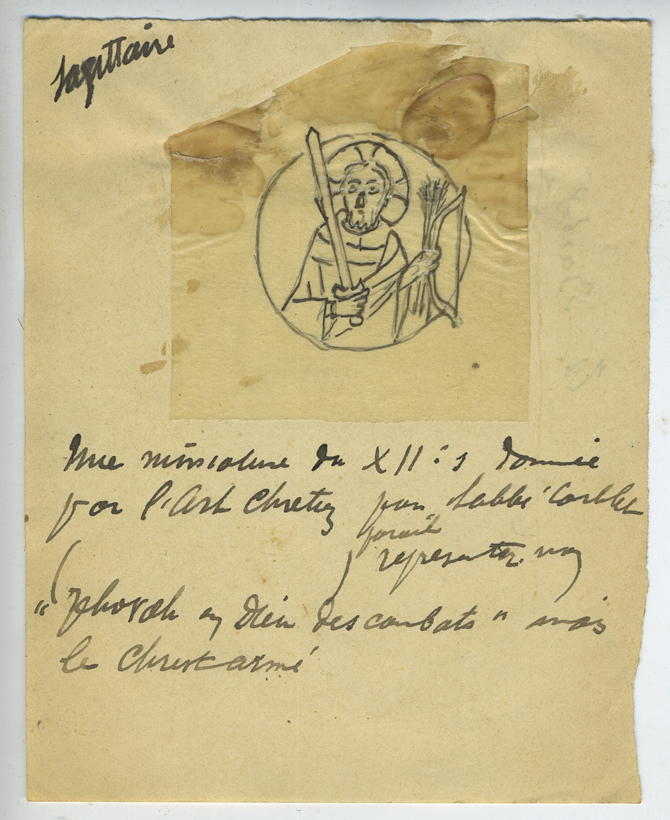 Sagittaire
Une miniature du XII: s donnée
par l'Art Chretien par l'abbé Corblet
parait
( ) representer non
en Dieu des combats" mais
le Christ armé